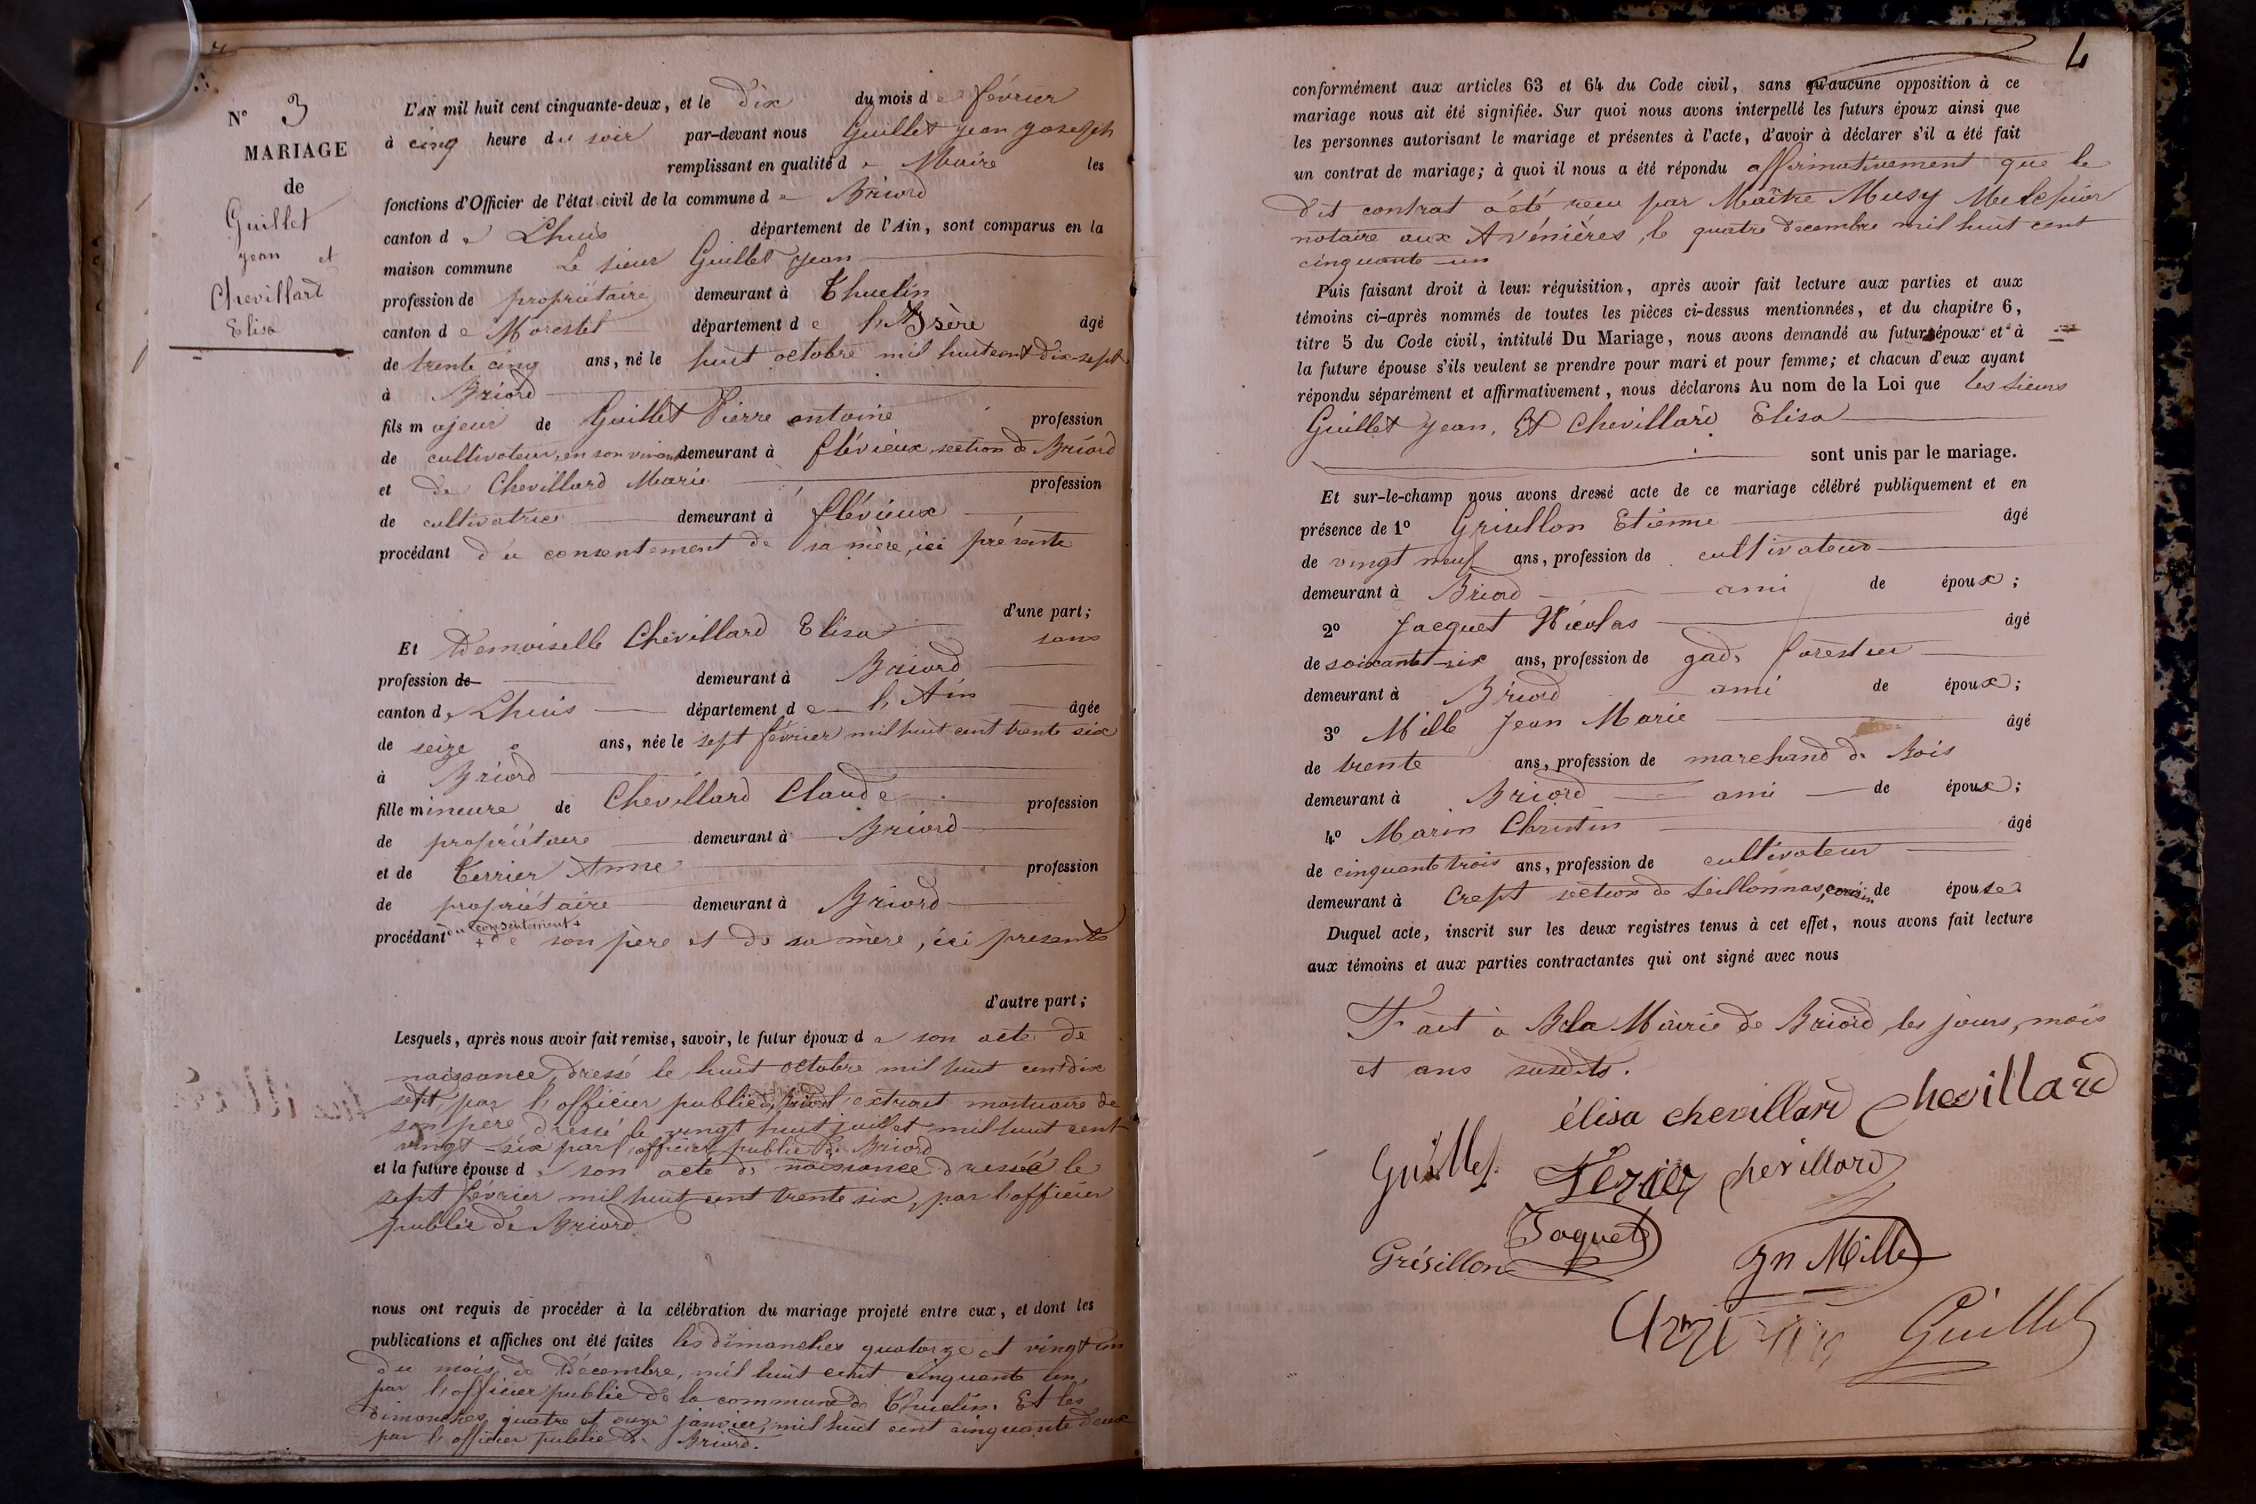 N° 3
MARIAGE
de
Guillet
jean et
Chevillard
Elisa
L'AN mil huit cent cinquante-deux, et le dix du mois de février
à cinq heure du soir par-devant nous Guillet jean joseph
remplissant en qualité de Maire les
fonctions d'Officier de l'état civil de la commune de Briord
canton de Lhuis département de l'Ain, sont comparus en la
maison commune Le sieur Guillet jean
profession de propriétaire demeurant à Thuelin
canton de Morestel département de l'Isère âgé
de trente cinq ans, né le huit octobre mil huit cent dix-sept
à Briord
fils majeur de Guillet Pierre antoine profession
de cultivateur, en son vivant demeurant à flévieux, section de Briord
et de Chevillard Marie profession
de cultivatrice demeurant à flévieux
procédant du consentement de sa mère, ici présente
d'une part;
Et Demoiselle Chevillard Elisa sans
profession de demeurant à Briord
canton de Lhuis département de l'Ain âgée
de seize ans, née le sept février mil huit cent trente six
à Briord
fille mineure de Chevillard Claude profession
de propriétaire demeurant à Briord
et de Terrier Anne profession
de propriétaire demeurant à Briord
procédant du consentement + + de son père et de sa mère, ici présents
d'autre part;
Lesquels, après nous avoir fait remise, savoir, le futur époux de son acte de
naissance, dressé le huit octobre mil huit cent dix
sept, par l'officier public de Briord l'extrait mortuaire de
son père dressé le vingt huit juillet mil huit cent
vingt-six par l'officier public de Briord
et la future épouse de son acte de naissance dressé le
sept février mil huit cent trente six, par l'officier
public de Briord
nous ont requis de procéder à la célébration du mariage projeté entre eux, et dont les
publications et affiches ont été faites les dimanches quatorze et vingt un
du mois de Décembre, mil huit cent cinquante un,
par l'officier public de la commune de Thuelin. Et les
dimanches quatre et onze janvier, mil huit cent cinquante deux
par l'officier public de Briord.
4
conformément aux articles 63 et 64 du Code civil, sans qu'aucune opposition à ce
mariage nous ait été signifiée. Sur quoi nous avons interpellé les futurs époux ainsi que
les personnes autorisant le mariage et présentes à l'acte, d'avoir à déclarer s'il a été fait
un contrat de mariage; à quoi il nous a été répondu affirmativement que le
dit contrat a été reçu par Maître Musy Melchior
notaire aux Avénières, le quatre décembre mil huit cent
cinquante-un
Puis faisant droit à leur réquisition, après avoir fait lecture aux parties et aux
témoins ci-après nommés de toutes les pièces ci-dessus mentionnées, et du chapitre 6,
titre 5 du Code civil, intitulé Du Mariage, nous avons demandé au futur époux et à
la future épouse s'ils veulent se prendre pour mari et pour femme; et chacun d'eux ayant
répondu séparément et affirmativement, nous déclarons Au nom de la Loi que les sieurs
Guillet jean, Et Chevillard Elisa
sont unis par le mariage.
Et sur-le-champ nous avons dressé acte de ce mariage célébré publiquement et en
présence de 1° Grisellon Etienne âgé
de vingt neuf ans, profession de cultivateur
demeurant à Briord ami de époux;
2° Jacquet Nicolas âgé
de soixante-six ans, profession de gad. forestier
demeurant à Briord ami de époux;
3° Mille Jean Marie âgé
de trente ans, profession de marchand de Bois
demeurant à Briord ami de époux;
4° Marin Christin âgé
de cinquante trois ans, profession de cultivateur
demeurant à Crept section de Seillonnas, cousin de épouse.
Duquel acte, inscrit sur les deux registres tenus à cet effet, nous avons fait lecture
aux témoins et aux parties contractantes qui ont signé avec nous
Fait à la Mairie de Briord, les jours, mois
et ans susdits.
élisa chevillard chevillard
Guillet Térier chevillard
Jaquet
Grésillon Jn Mille
Guillet